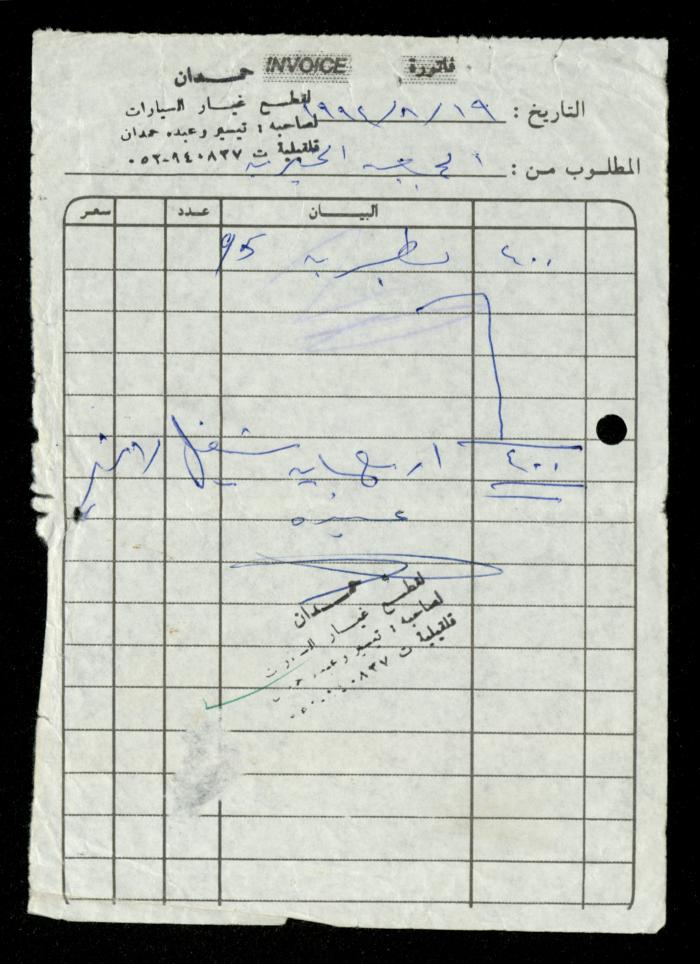 فاتورة INVOICE
حمدان
لقطع غيار السيارات
لصاحبه : تيسير وعبده حمدان
قلقيلية ت ٩٤٠٨٣٧-٠٥٢
التاريخ : ١٩/٨/١٩٩٢
المطلوب من : الجمعية الخيرية
البيان عدد سعر
٤٠٠ بطرية 95
٤٠٠ اربعماية شيقل
عبده
حمدان
لقطع غيار السيارات
لصاحبه : تيسير وعبده حمدان
قلقيلية ت ٩٤٠٨٣٧-٠٥٢